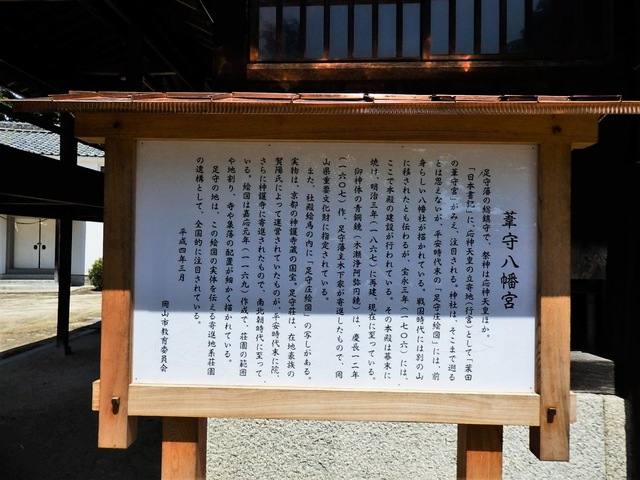 葦守八幡宮
足守藩の総鎮守で、祭神は応神天皇ほか。
「日本書記」に、応神天皇の立寄地(行宮)として「葉田
の葦守宮」がみえ、注目される。神社は、そこまで遡る
とは思えないが、平安時代末の「足守庄絵図」には、前
身らしい八幡社が描かれている。戦国時代には別の山
に移されたとも伝わるが、宝永三年(一七〇六)には、
ここで本殿の建設が行われている。その本殿は幕末に
焼け、明治三年(一八六七)に再建、現在に至っている。
御神体の青銅鏡(木瀬浄阿弥円鏡)は、慶長一二年
(一六〇七)作、足守藩主木下家が寄進したもので、岡
山県重要文化財に指定されている。
また、社殿絵馬の内に「足守庄絵図」の写しがある。
実物は、京都の神護寺蔵の国宝。足守荘は、在地豪族の
賀陽氏によって運営されていたものが、平安時代末に院、
さらに神護寺に寄進されたもので、南北朝時代に至って
いる。絵図は嘉応元年(一一六九)作成で、荘園の範囲
や地割り、寺や集落の配置が細かく描かれている。
足守の地は、この絵図の実体を伝える寄進地系荘園
の遺構として、全国的に注目されている。
平成四年三月
岡山市教育委員会